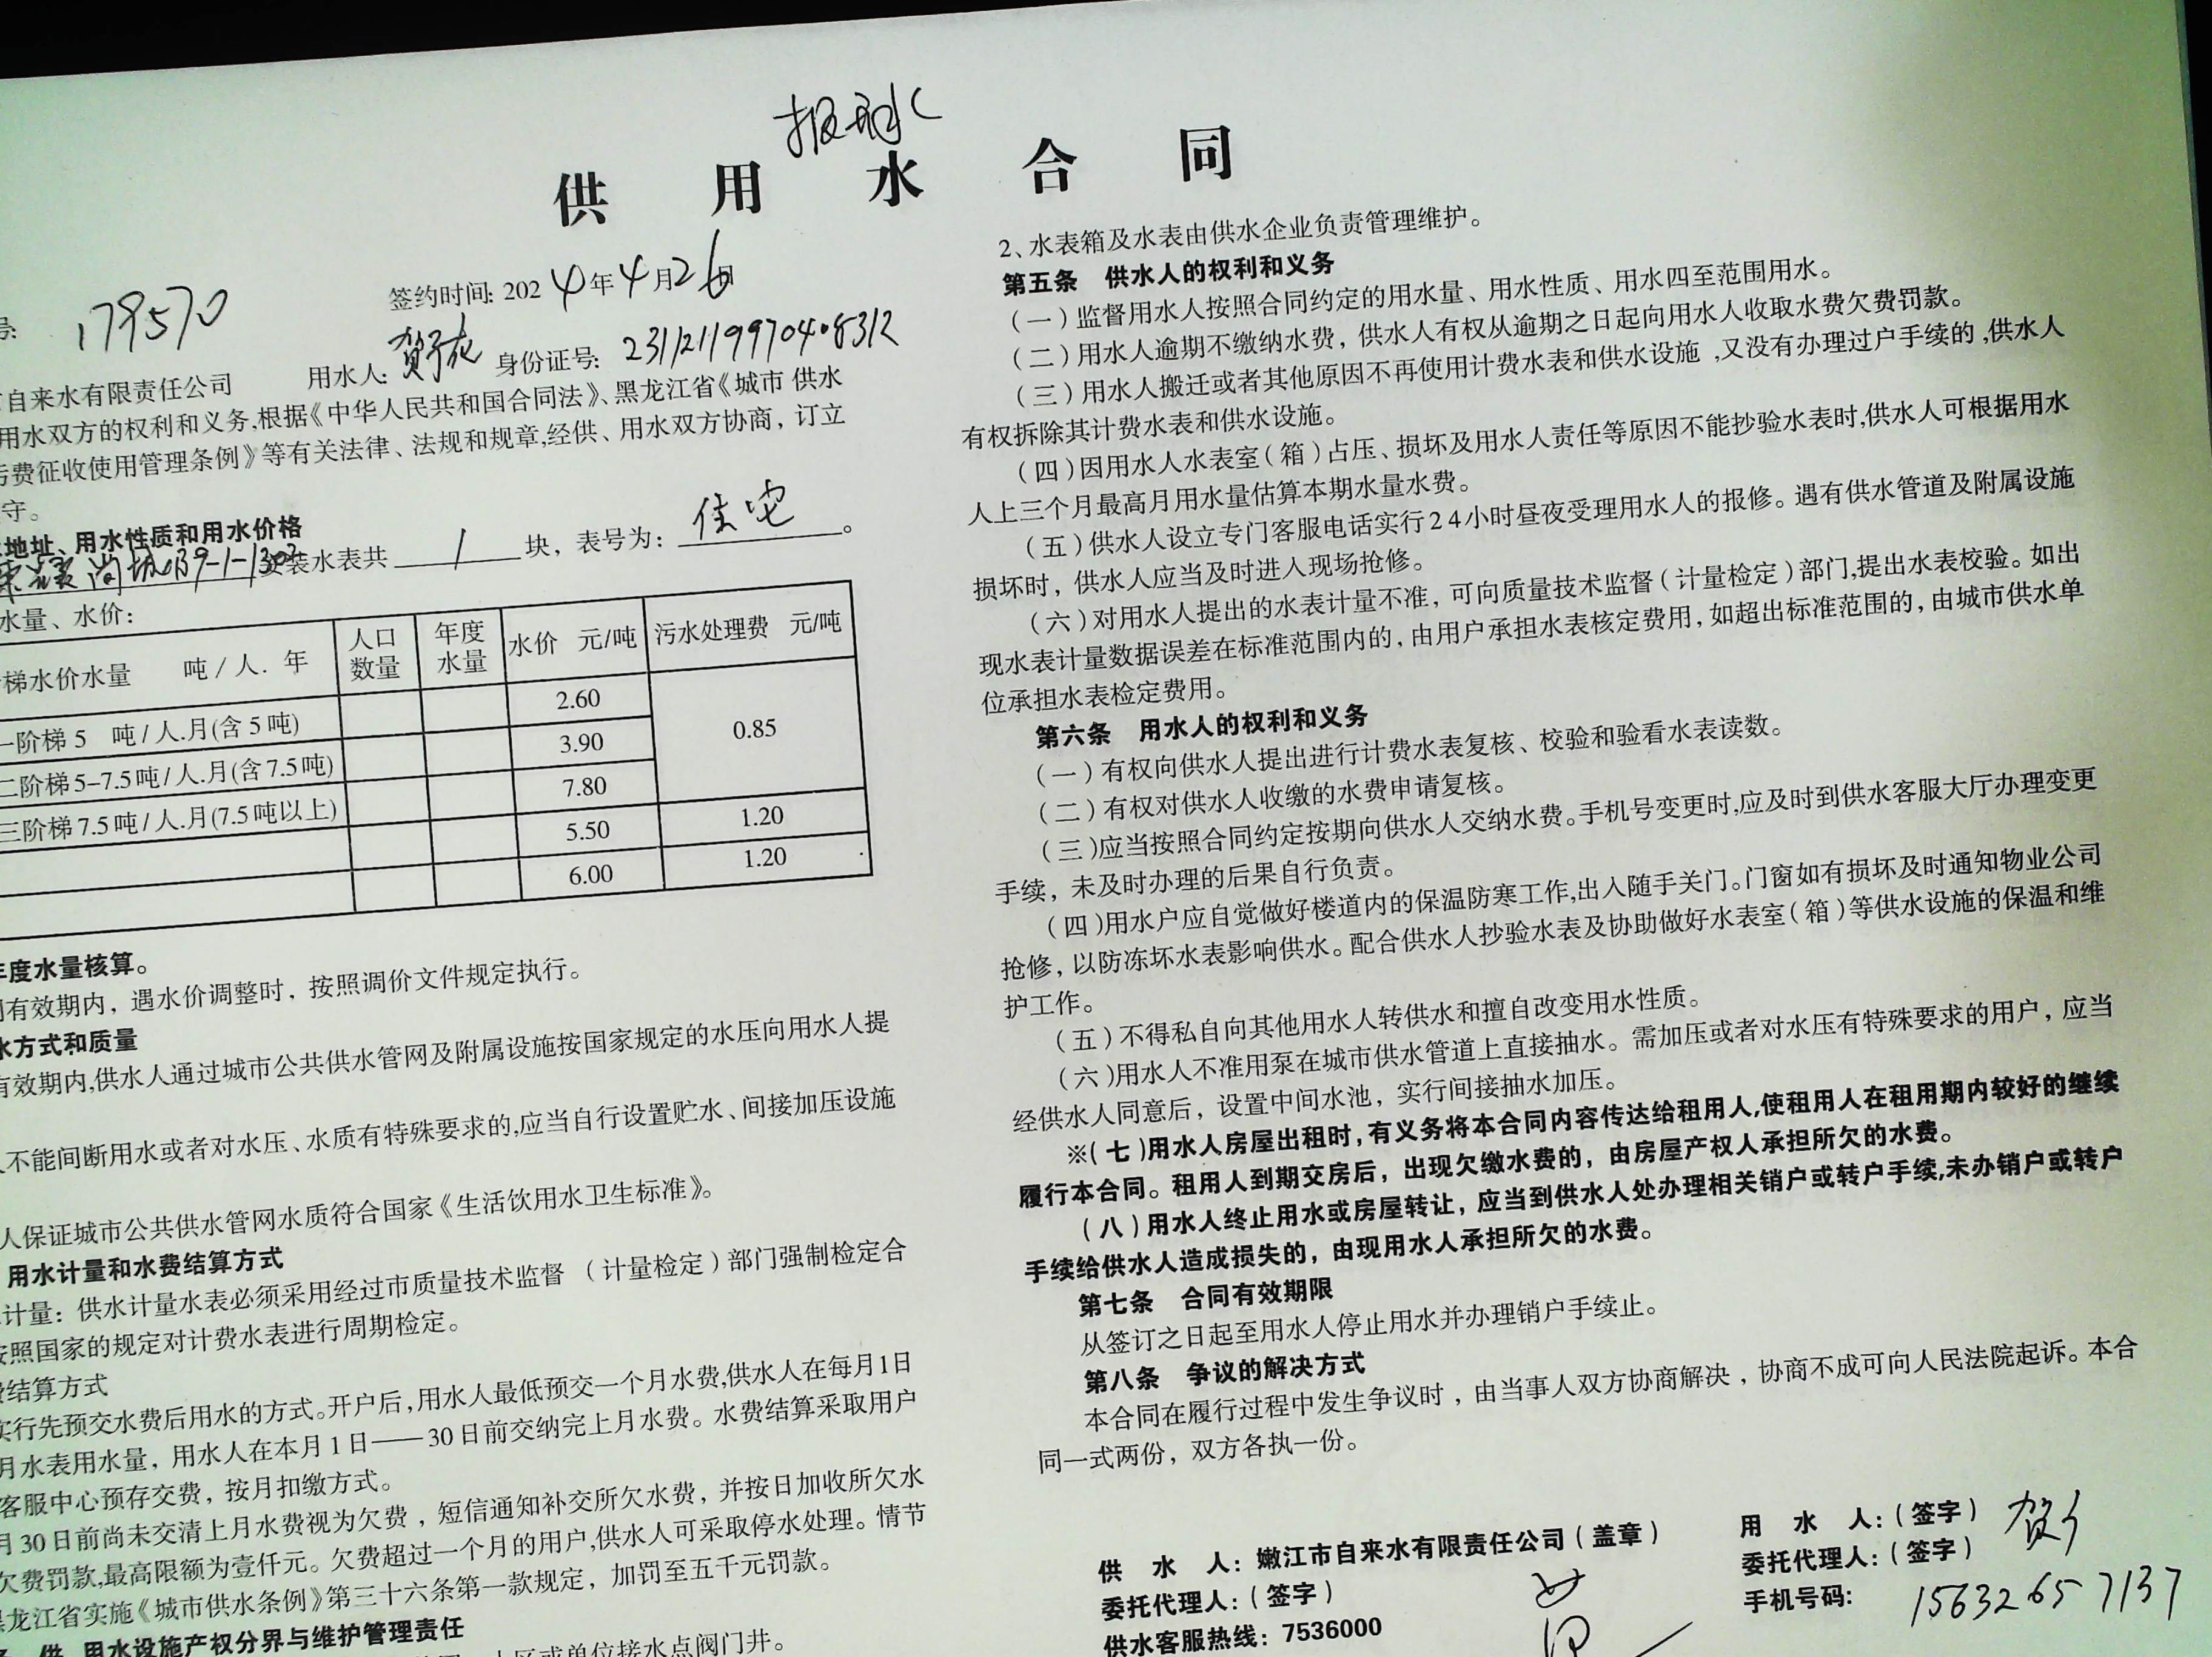 供 用 水 合 同
179570
签约时间: 2024年4月26日
自来水有限责任公司 用水人: 身份证号: 23112119970408312
用水双方的权利和义务,根据《中华人民共和国合同法》、黑龙江省《城市 供水
费征收使用管理条例》等有关法律、法规和规章,经供、用水双方协商, 订立
守。
地址、用水性质和用水价格
尚城B9-1-1302 安装水表共 1 块, 表号为: 住宅 。
水量、水价:
梯水价水量 吨 / 人. 年 人口数量 年度水量 水价 元/吨 污水处理费 元/吨
一阶梯 5 吨 / 人.月(含 5 吨) 2.60 0.85
二阶梯 5-7.5吨 / 人.月(含 7.5 吨) 3.90
三阶梯 7.5 吨 / 人.月(7.5 吨以上) 7.80
5.50 1.20
6.00 1.20
年度水量核算。
有效期内, 遇水价调整时, 按照调价文件规定执行。
水方式和质量
有效期内,供水人通过城市公共供水管网及附属设施按国家规定的水压向用水人提
不能间断用水或者对水压、水质有特殊要求的,应当自行设置贮水、间接加压设施
人保证城市公共供水管网水质符合国家《生活饮用水卫生标准》。
用水计量和水费结算方式
计量: 供水计量水表必须采用经过市质量技术监督 (计量检定)部门强制检定合
按照国家的规定对计费水表进行周期检定。
费结算方式
实行先预交水费后用水的方式。开户后,用水人最低预交一个月水费,供水人在每月1日
月水表用水量, 用水人在本月 1 日——30 日前交纳完上月水费。水费结算采取用户
客服中心预存交费, 按月扣缴方式。
月 30 日前尚未交清上月水费视为欠费, 短信通知补交所欠水费, 并按日加收所欠水
欠费罚款,最高限额为壹仟元。欠费超过一个月的用户,供水人可采取停水处理。情节
黑龙江省实施《城市供水条例》第三十六条第一款规定, 加罚至五千元罚款。
供、用水设施产权分界与维护管理责任
小区或单位接水点阀门井。
2、水表箱及水表由供水企业负责管理维护。
第五条 供水人的权利和义务
(一)监督用水人按照合同约定的用水量、用水性质、用水四至范围用水。
(二)用水人逾期不缴纳水费, 供水人有权从逾期之日起向用水人收取水费欠费罚款。
(三)用水人搬迁或者其他原因不再使用计费水表和供水设施,又没有办理过户手续的,供水人
有权拆除其计费水表和供水设施。
(四)因用水人水表室(箱)占压、损坏及用水人责任等原因不能抄验水表时,供水人可根据用水
人上三个月最高月用水量估算本期水量水费。
(五)供水人设立专门客服电话实行24小时昼夜受理用水人的报修。遇有供水管道及附属设施
损坏时, 供水人应当及时进入现场抢修。
(六)对用水人提出的水表计量不准, 可向质量技术监督(计量检定)部门,提出水表校验。如出
现水表计量数据误差在标准范围内的, 由用户承担水表核定费用, 如超出标准范围的, 由城市供水单
位承担水表检定费用。
第六条 用水人的权利和义务
(一)有权向供水人提出进行计费水表复核、校验和验看水表读数。
(二)有权对供水人收缴的水费申请复核。
(三)应当按照合同约定按期向供水人交纳水费。手机号变更时,应及时到供水客服大厅办理变更
手续, 未及时办理的后果自行负责。
(四)用水户应自觉做好楼道内的保温防寒工作,出入随手关门。门窗如有损坏及时通知物业公司
抢修, 以防冻坏水表影响供水。配合供水人抄验水表及协助做好水表室(箱)等供水设施的保温和维
护工作。
(五)不得私自向其他用水人转供水和擅自改变用水性质。
(六)用水人不准用泵在城市供水管道上直接抽水。需加压或者对水压有特殊要求的用户, 应当
经供水人同意后, 设置中间水池, 实行间接抽水加压。
※(七)用水人房屋出租时, 有义务将本合同内容传达给租用人,使租用人在租用期内较好的继续
履行本合同。租用人到期交房后, 出现欠缴水费的, 由房屋产权人承担所欠的水费。
(八)用水人终止用水或房屋转让, 应当到供水人处办理相关销户或转户手续,未办销户或转户
手续给供水人造成损失的, 由现用水人承担所欠的水费。
第七条 合同有效期限
从签订之日起至用水人停止用水并办理销户手续止。
第八条 争议的解决方式
本合同在履行过程中发生争议时, 由当事人双方协商解决, 协商不成可向人民法院起诉。本合
同一式两份, 双方各执一份。
供 水 人: 嫩江市自来水有限责任公司(盖章)
委托代理人:(签字)
供水客服热线: 7536000
用 水 人:(签字)
委托代理人:(签字)
手机号码: 15632657137